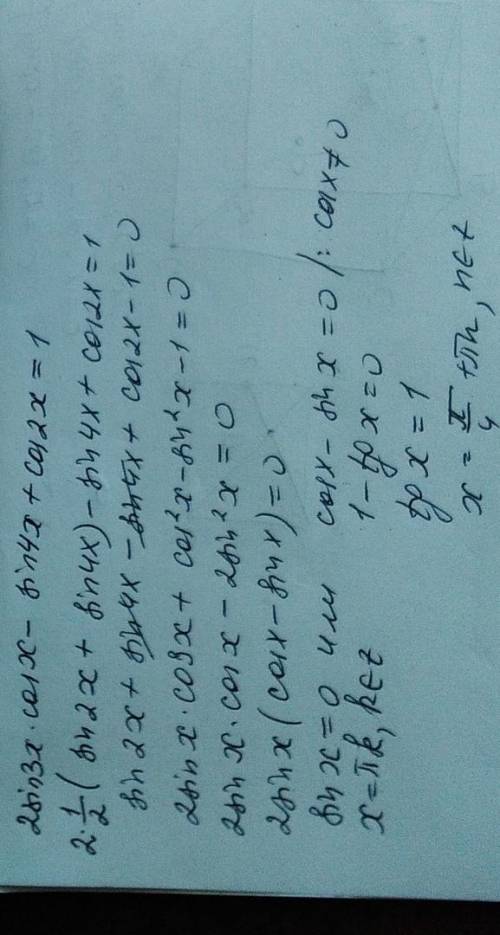 2sin3x·cosx - sin4x + cos2x = 1
2·1/2(sin2x + sin4x) - sin4x + cos2x = 1
sin2x + sin4x - sin4x + cos2x - 1 = 0
2sinx·cosx + cos²x - sin²x - 1 = 0
2sinx·cosx - 2sin²x = 0
2sinx(cosx - sinx) = 0
sinx = 0 или cosx - sinx = 0 /: cosx ≠ 0
x = πk, k∈z 1 - tgx = 0
tgx = 1
x = π/4 + πn, n∈z